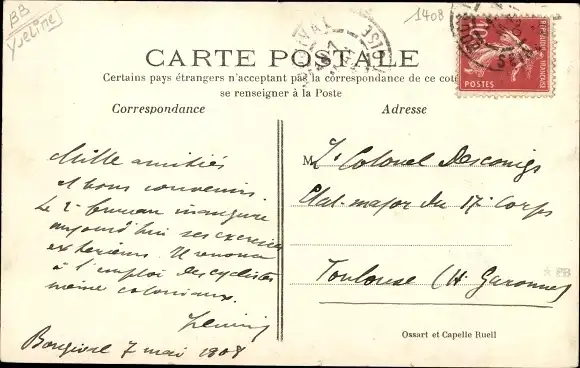 BB
Yveline
1408
CARTE POSTALE
Certains pays étrangers n'acceptant pas la correspondance de ce coté
se renseigner à la Poste
Correspondance
Adresse
10
POSTES
REPUBLIQUE FRANÇAISE
Mille amitiés
et bons souvenirs.
Le 2e bureau inaugure
aujourd'hui ses exercices
extérieurs. Il renonce
à l'emploi des cyclistes
même coloniaux.
Bougival 7 mai 1908
M Lt Colonel
Etat-major du 17e Corps
Toulouse (Hte Garonne)
Ossart et Capelle Rueil